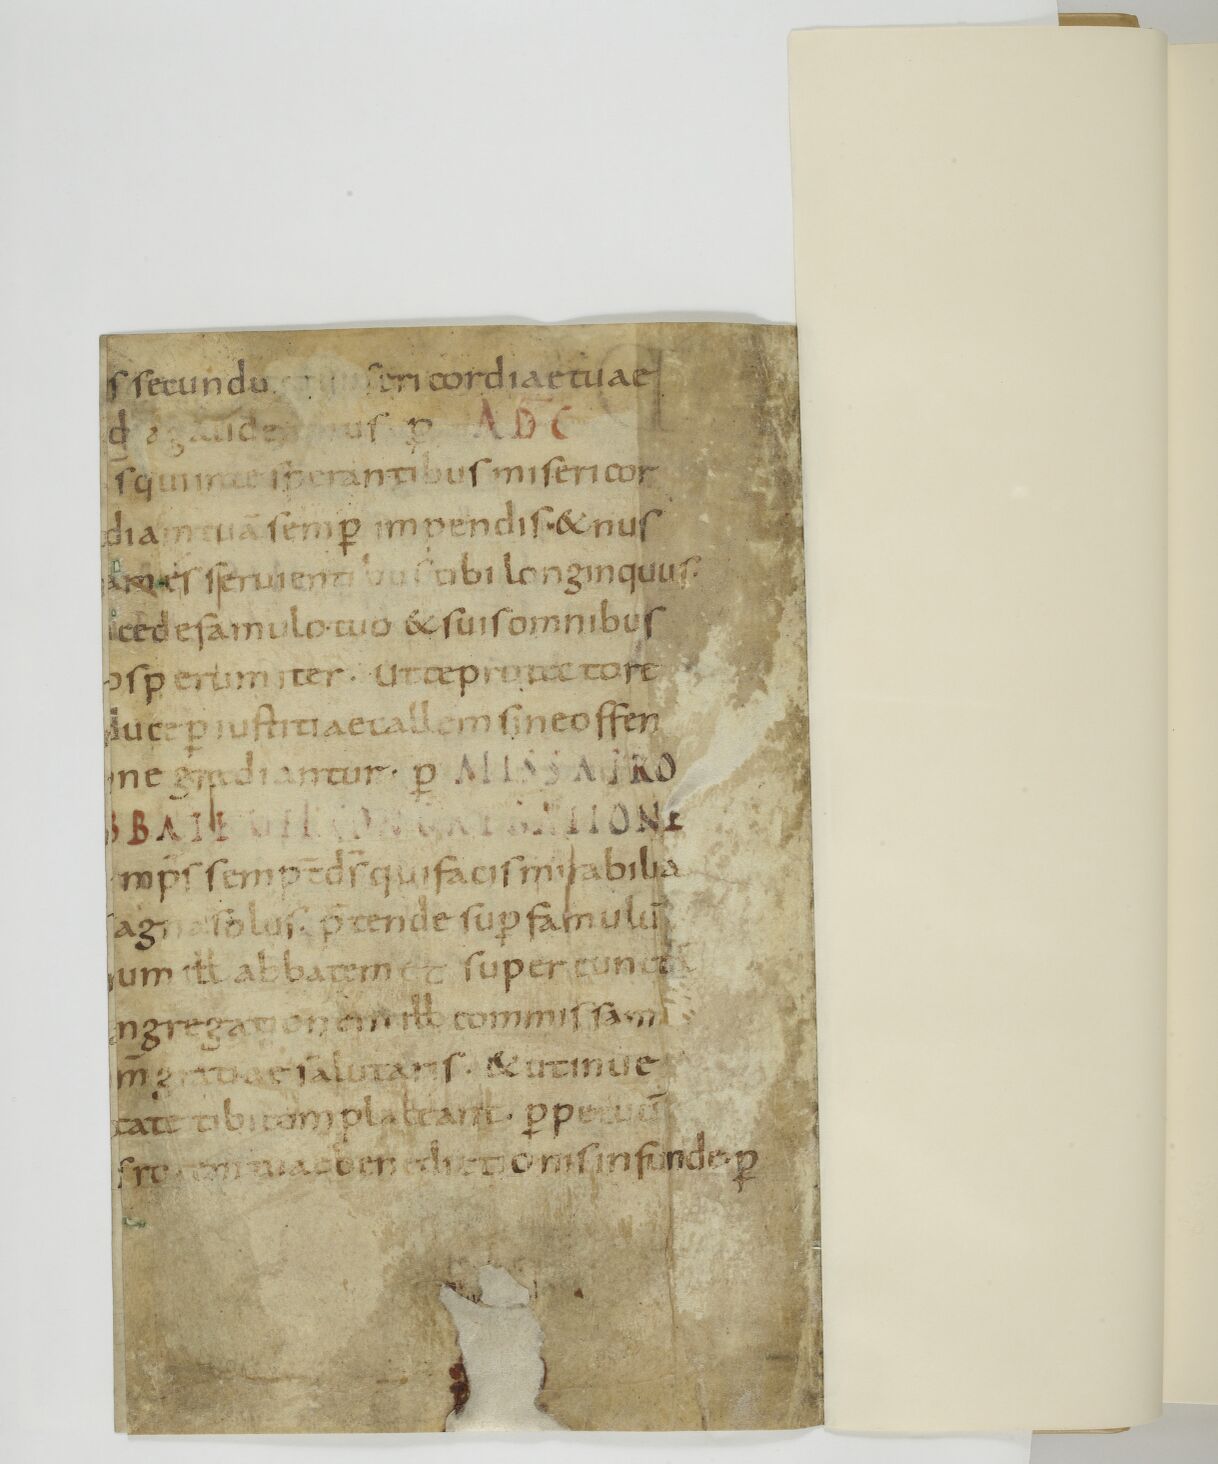 s secundu misericordiae tuae
d agaudeamus p̲ AD C̄
s̄ qui in te sperantibus misericor
diam tuā semp̲ impendis · & nus
am es servientibus tibi longinquus ·
cede famulo tuo & suis omnibus
osperum iter · Ut te protectore
duce p̲ iustitiae callem sine offen
one gradiantur · p̲ MISSA PRO
BBATE VEL CONGREGATIONE
mp̄s semp̲t̄ d̄s qui facis mirabilia
agna solus · p̄tende sup̲ famulū
uum ill abbatem et super cunctā
ngregationem illi commissam
m̄ gratiae salutaris · & ut in ve
tate tibi complaceant · p̲petuū
s rorem tuae benedictionis infunde · p̲